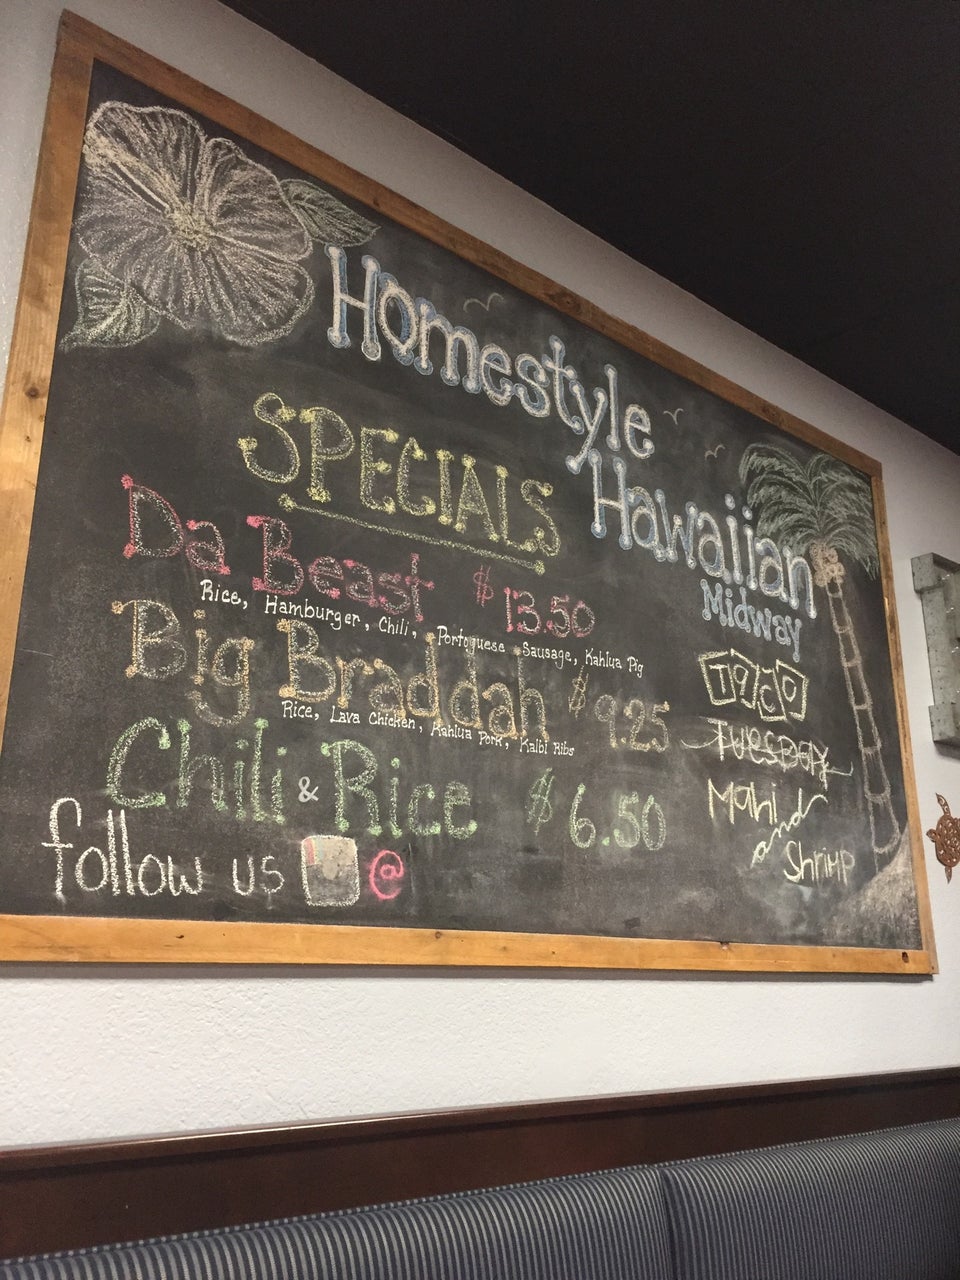 Homestyle
Hawaiian
Midway
SPECIALS
Da Beast $13.50
Rice, Hamburger, Chili, Portoguese Sausage, Kahlua Pig
Big Braddah $9.25
Rice, Lava Chicken, Kahlua Pork, Kalbi Ribs
Chili & Rice $6.50
follow us @
TACO
TUESDAY
Mahi
and
Shrimp